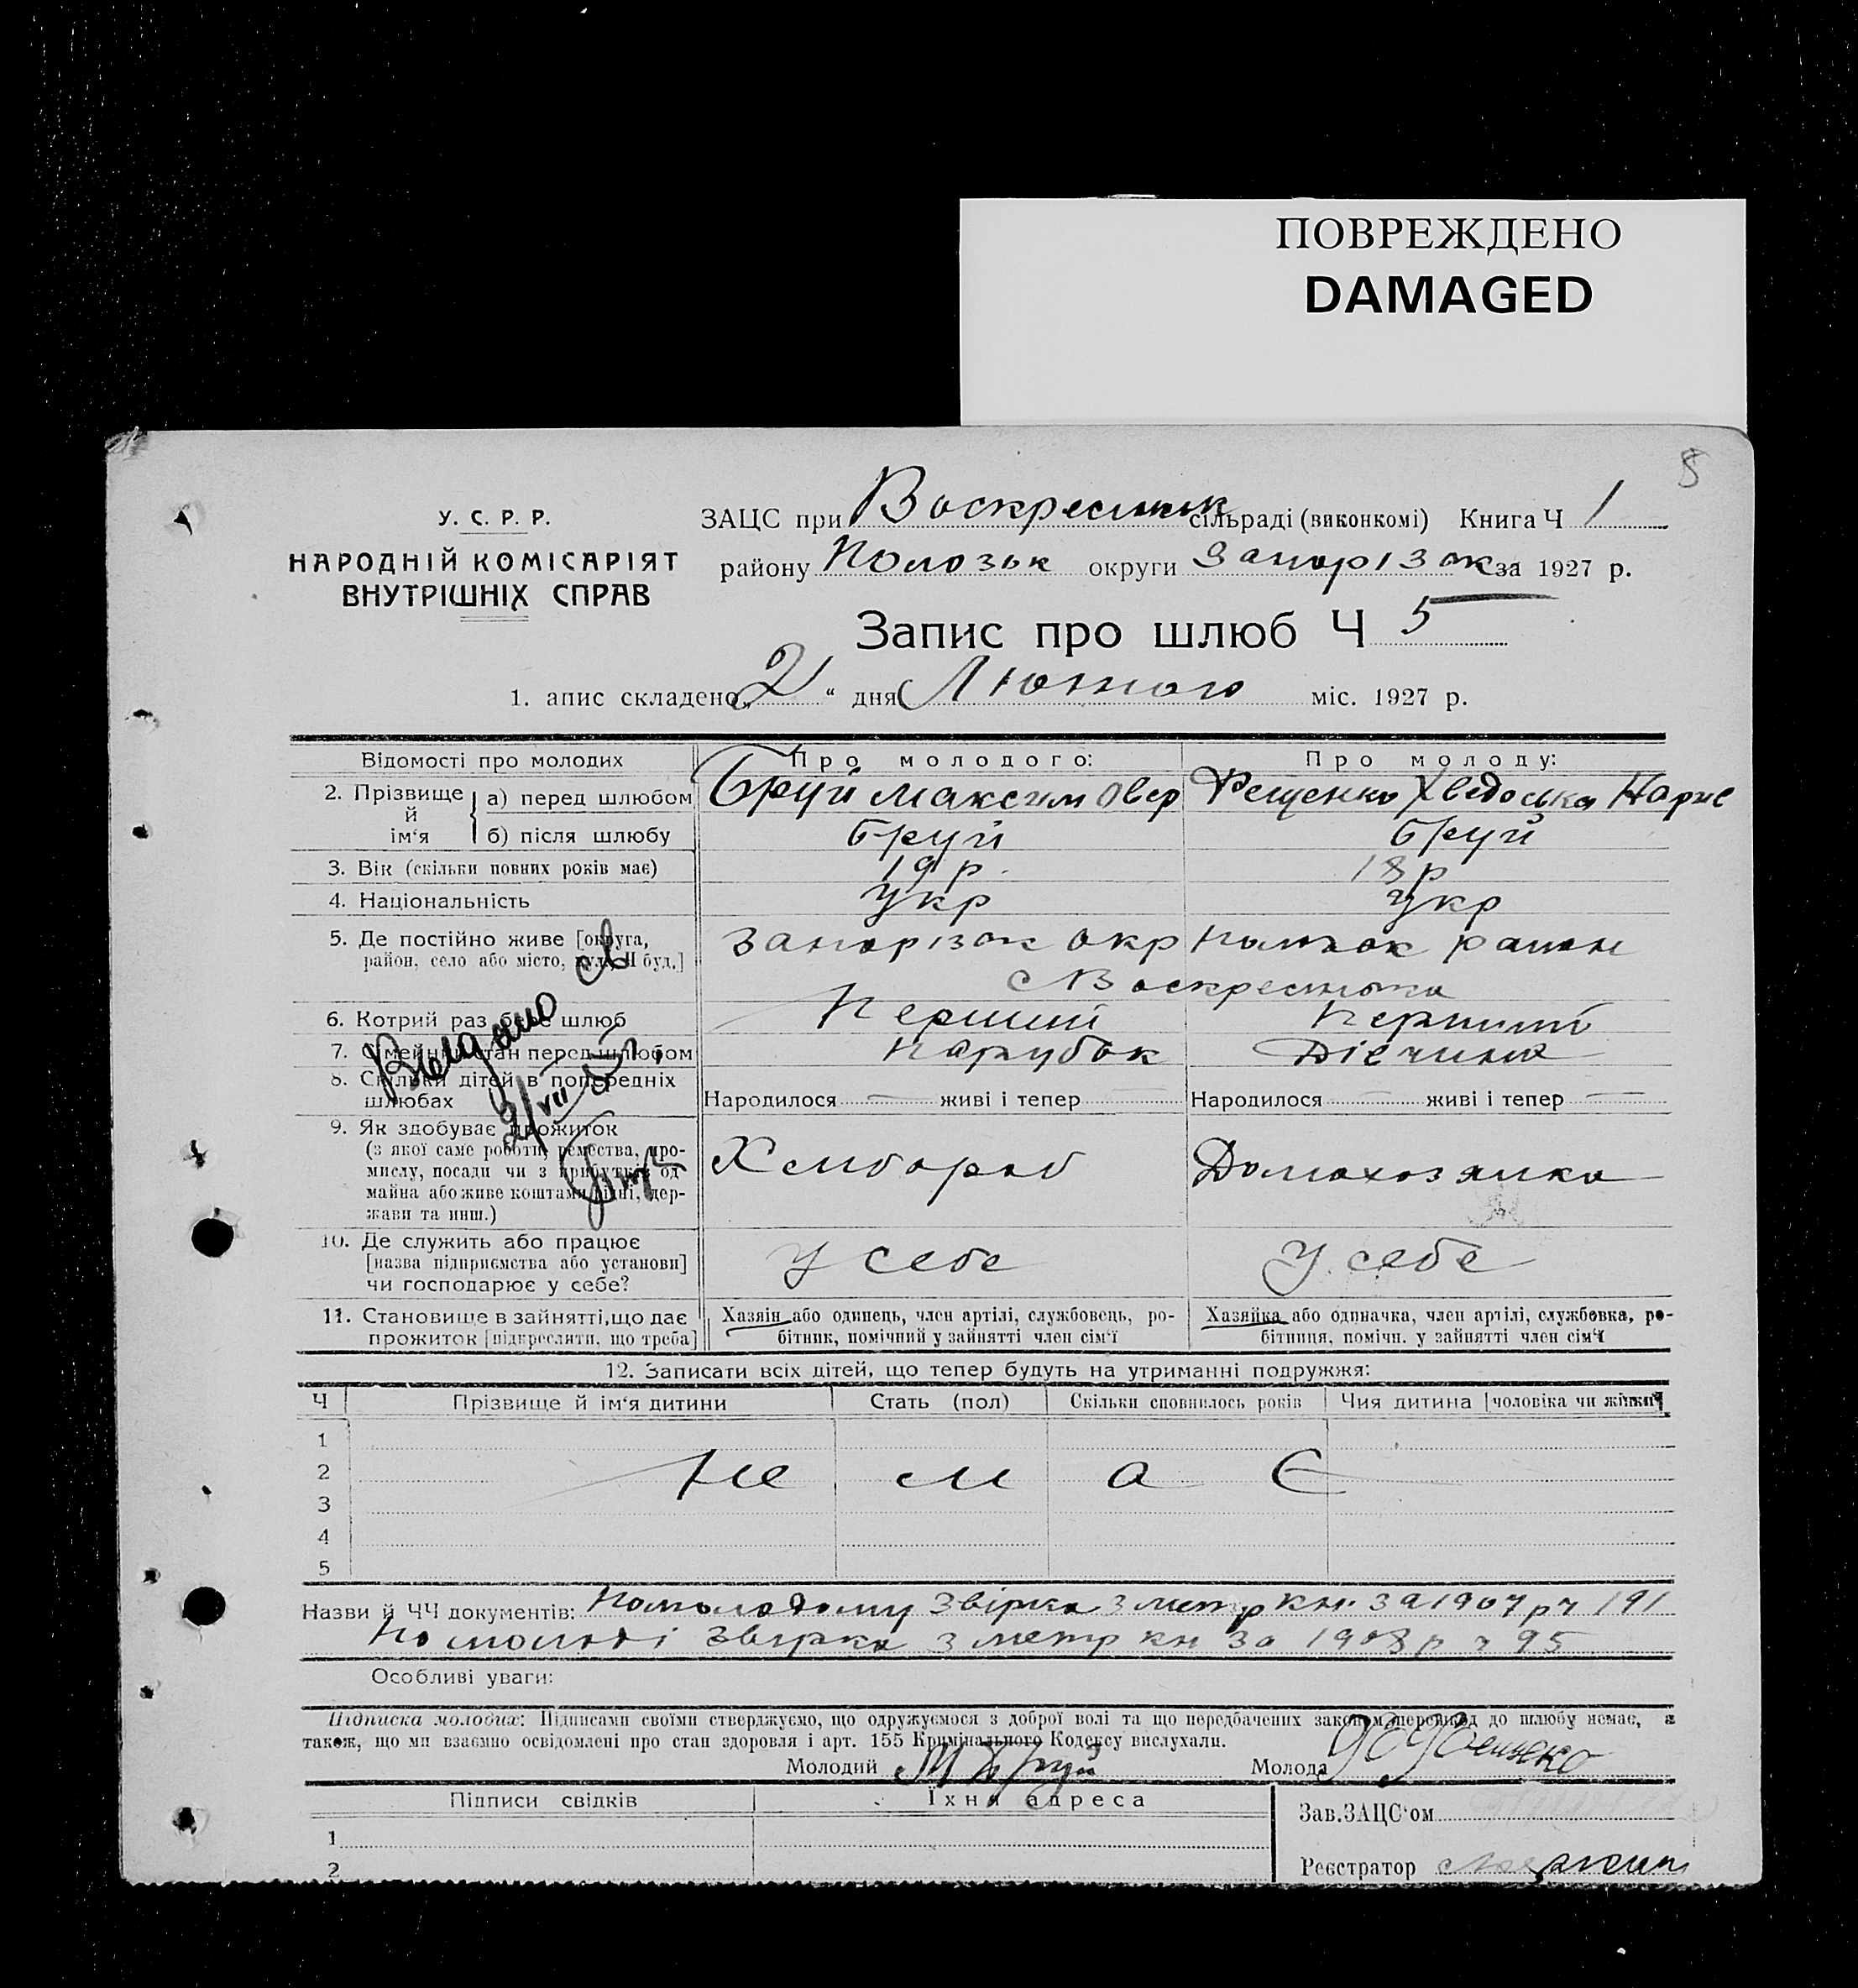 ПОВРЕЖДЕНО
DAMAGED
8
У. С. Р. Р.
НАРОДНІЙ КОМІСАРІЯТ
ВНУТРІШНІХ СПРАВ
ЗАЦС при Воскресенськ сільраді (виконкомі) Книга Ч 1
району Полозьк округи Запорізьк за 1927 р.
Запис про шлюб Ч 5
1. апис складено „2“ дня Лютого міс. 1927 р.
Відомості про молодих
Про молодого:
Про молоду:
2. Прізвище й ім‘я
а) перед шлюбом
Бруй Максим Овер
Фещенко Хведоська
б) після шлюбу
Бруй
Бруй
3. Вік (скільки повних років має)
19 р.
18 р
4. Національність
Укр
Укр
5. Де постійно живе [округа,
район, село або місто, вул., Ч буд.]
Запорізьк Окр Полозьк район
с Воскресенька
6. Котрий раз бере шлюб
Перший
Перший
7. Сімейний стан перед шлюбом
Парубок
Дівчина
8. Скільки дітей в попередніх
шлюбах
Народилося — живі і тепер —
Народилося — живі і тепер —
9. Як здобуває прожиток
(з якої саме роботи, ремества, про-
мислу, посади чи з прибутків од
майна або живе коштами рідні, дер-
жави та инш.)
Хлібороб
Домохозяйка
Видано
2/VII
10. Де служить або працює
[назва підприємства або установи]
чи господарює у себе?
у себе
у себе
11. Становище в зайнятті, що дає
прожиток [підкреслити, що треба]
Хазяін або одинець, член артілі, службовець, ро-
бітник, помічний у зайнятті член сім‘ї
Хазяйка або одиначка, член артілі, службовка, ро-
бітниця, помічн. у зайнятті член сім‘ї
12. Записати всіх дітей, що тепер будуть на утриманні подружжя:
Ч
Прізвище й ім‘я дитини
Стать (пол)
Скільки сповнилось років
Чия дитина [чоловіка чи жінки]
1
2
не м а є
3
4
5
Назви й ЧЧ документів: По молодому звірка з метр кн. за 1907 р ч 191
По молоді звірка з метр кн за 1908 р ч 95
Особливі уваги:
Підписка молодих: Підписами своїми стверджуємо, що одружуємося з доброї волі та що передбачених законом перешкод до шлюбу немає, а
також, що ми взаємно освідомлені про стан здоровля і арт. 155 Кримінального Кодексу вислухали.
Молодий М Бруй
Молода
Підписи свідків
Їхня адреса
1
2
Зав. ЗАЦС‘ом
Реєстратор